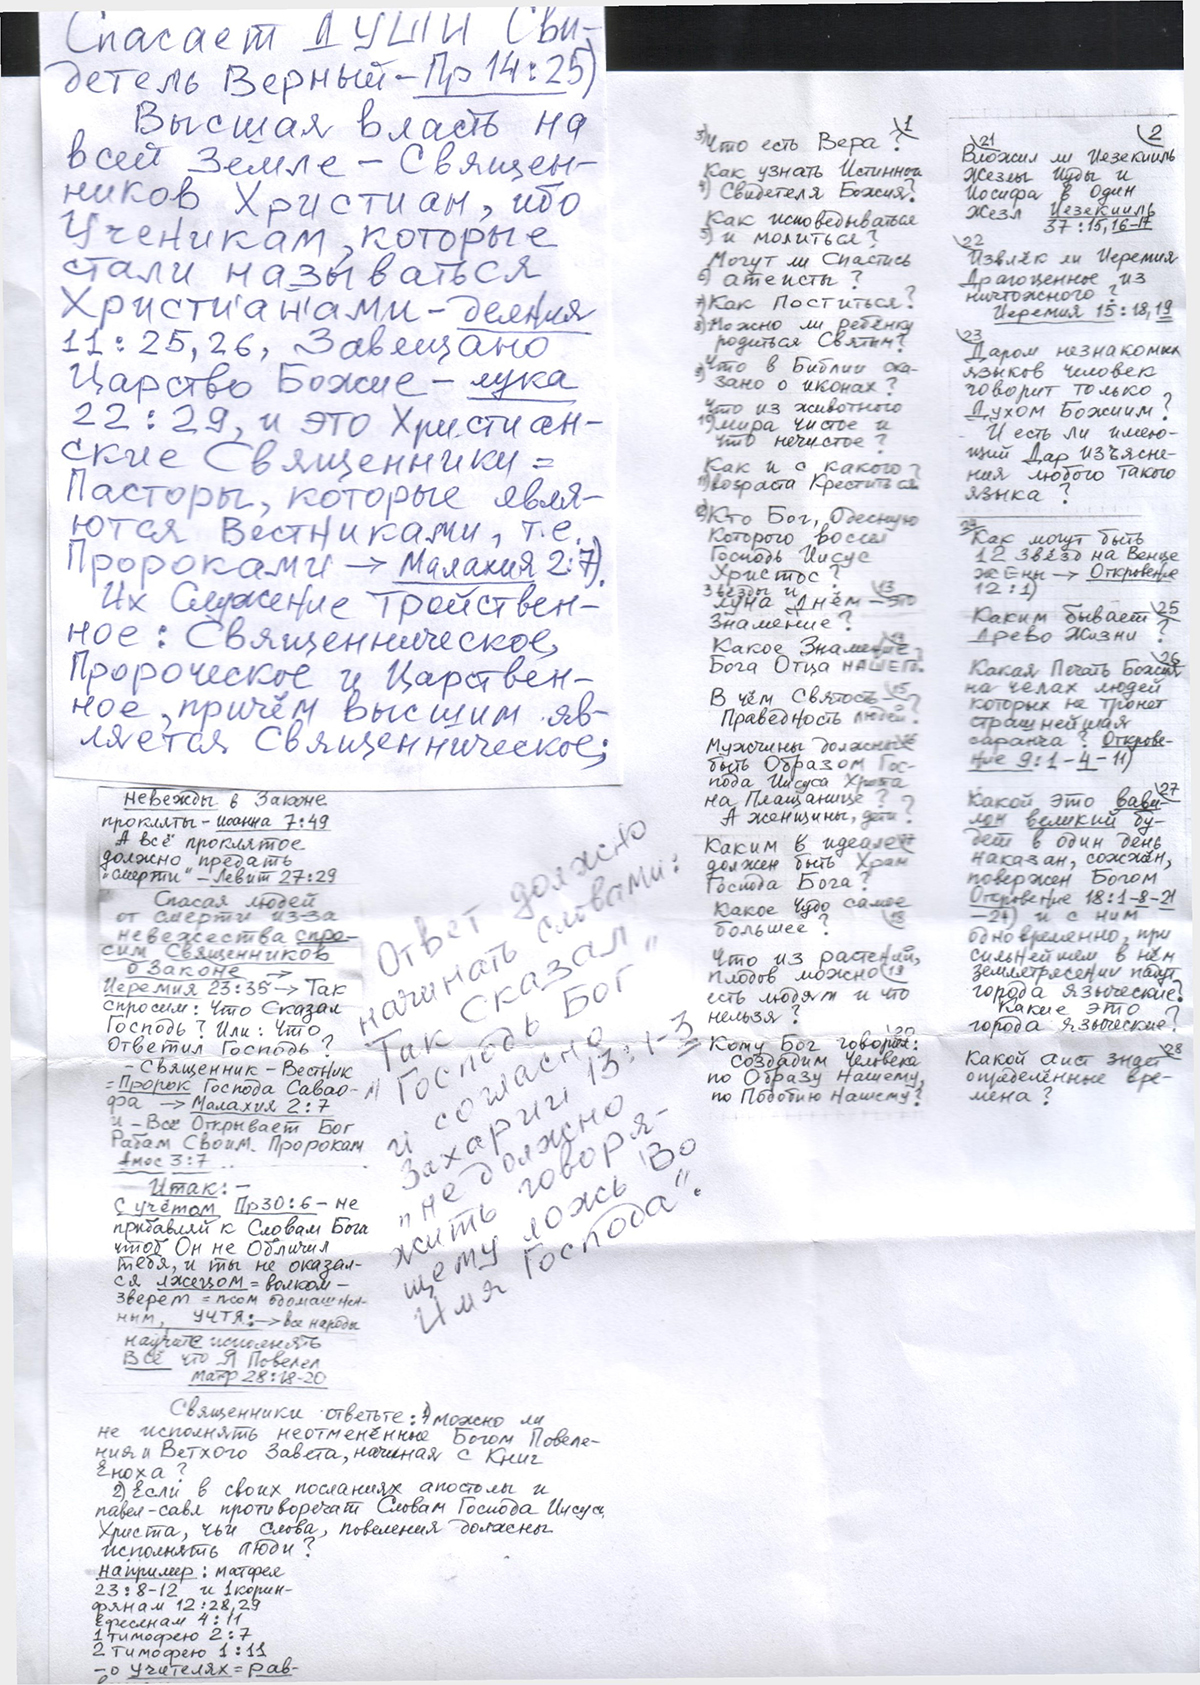 Спасает ДУШИ Сви-
детель Верный – Пр 14:25)
Высшая власть на
всей Земле – Священ-
ников Христиан, ибо
Ученикам, которые
стали называться
Христианами – деяния
11:25,26, Завещано
Царство Божие – лука
22:29, и это Христиан-
ские Священники =
Пасторы, которые явля-
ются Вестниками, т.е.
Пророками → Малахия 2:7).
Их Служение Тройствен-
ное: Священническое,
Пророческое и Царствен-
ное, причём высшим яв-
ляется Священническое;
невежды в Законе
прокляты – иоанна 7:49
А всё проклятое
должно предать
"смерти" – Левит 27:29
Спасая людей
от смерти из-за
невежества спро-
сим Священников
о Законе →
Иеремия 23:35 → Так
спросим: Что Сказал
Господь? Или: Что
Ответил Господь?
– Священник – Вестник
= Пророк Господа Савао-
фа → Малахия 2:7
и – Всё Открывает Бог
Рабам Своим Пророкам
Амос 3:7
Итак: –
С учётом Пр30:6 – не
прибавляй к Словам Бога
чтоб Он не Обличил
тебя, и ты не оказал-
ся лжецом = волком –
зверем = псом одомашнен-
ным, УЧТЯ: → все народы
научите исполнять
Всё что Я Повелел
матф 28:18-20
Ответ должно
начинать словами:
"Так Сказал
Господь Бог"
и согласно
Захарии 13:1-3
"не должно
жить говоря-
щему ложь Во
Имя Господа".
Священники ответьте: 1) можно ли
не исполнять неотменённые Богом Повеле-
ния Ветхого Завета, начиная с Книг
Еноха?
2) Если в своих посланиях апостолы и
павел-савл противоречат Словам Господа Иисуса
Христа, чьи слова, повеления должны
исполнять люди?
например: матфея
23:8-12 и 1корин-
фянам 12:28,29
Ефесянам 4:11
1 тимофею 2:7
2 Тимофею 1:11
– о учителях = рав-
1
3) Что есть Вера?
Как узнать Истинного
4) Свидетеля Божия?
Как исповедываться
5) и молиться?
Могут ли Спастись
6) атеисты?
7) Как Поститься?
8) Можно ли ребёнку
родиться Святым?
9) Что в Библии ска-
зано о иконах?
Что из животного
10) мира чистое и
что нечистое?
Как и с какого
11) возраста Креститься?
12) Кто Бог, Одесную
Которого воссел
Господь Иисус
Христос?
Звёзды и 13
луна днём – это
Знамение?
Какое Знамение
Бога Отца НАШЕГО?
В чём Святость 15
Праведность людей?
Мужчины должны
быть Образом Гос-
пода Иисуса Христа
на Плащанице?
А женщины, дети?
Каким в идеале
должен быть Храм
Господа Бога?
Какое Чудо самое
большее? 18
Что из растений,
плодов можно 19
есть людям и что
нельзя?
Кому Бог говорил: 20
создадим Человека
по Образу Нашему,
по Подобию Нашему?
2
21
Вложил ли Иезекииль
Жезлы Иуды и
Иосифа в один
жезл Иезекииль
37:15,16-17
22
Извлёк ли Иеремия
Драгоценное из
ничтожного?
Иеремия 15:18,19
23
Даром незнакомых
языков человек
говорит только
Духом Божиим?
И есть ли имею-
щий Дар изъясне-
ния любого такого
языка?
24
Как могут быть
12 звёзд на Венце
жены → Откровение
12:1)
Каким бывает 25
Древо Жизни?
26
Какая Печать Божия
на челах людей
которых не тронет
страшнейшая
саранча? Открове-
ние 9:1-4-11)
27
Какой это вави-
лон великий бу-
дет в один день
наказан, сожжён,
повержен Богом
Откровение 18:1-8-21
-24) и с ним
одновременно, при
сильнейшем в нём
землетрясении падут
города языческие?
Какие это
города языческие?
28
Какой аист знает
определённые вре-
мена?